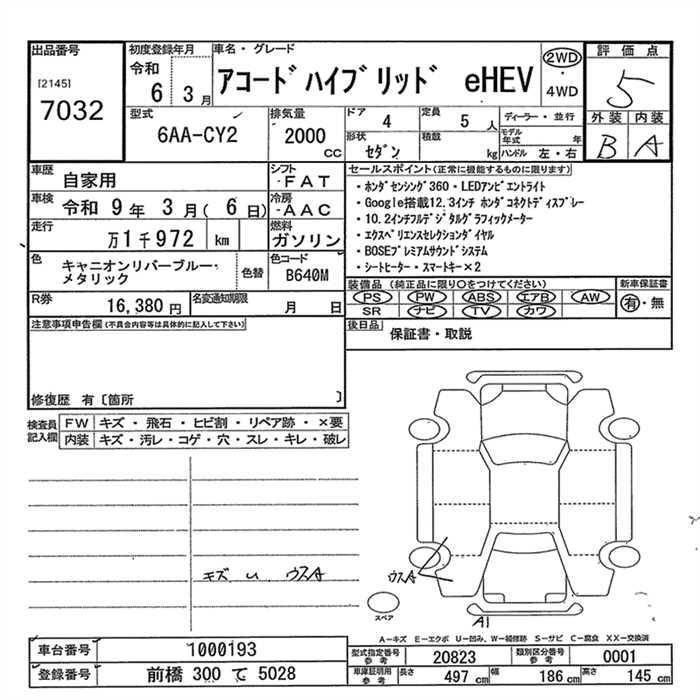 出品番号
[2145]
7032
初度登録年月
令和
6 3月
車名・グレード
アコードハイブリッド eHEV
2WD
・
4WD
評価点
5
外装 内装
B A
型式
6AA-CY2
排気量
2000
CC
ドア
4
定員
5 人
形状
セダン
積載
kg
ディーラー・並行
モデル年式 年
ハンドル 左・右
車歴
自家用
シフト
FAT
車検
令和 9年 3月( 6日)
冷房
AAC
走行
万1千972 km
燃料
ガソリン
色
キャニオンリバーブルー・メタリック
色替
色コード
B640M
R券
16,380円
名変通知期限
月 日
セールスポイント(正常に機能するものに限ります)
・ホンダセンシング360・LEDアンビエントライト
・Google搭載12.3インチ ホンダコネクトディスプレー
・10.2インチフルデジタルグラフィックメーター
・エクスペリエンスセレクションダイヤル
・BOSEプレミアムサウンドシステム
・シートヒーター・スマートキー×2
装備品 (純正品に限り○をつけてください)
PS PW ABS エアB AW
SR ナビ TV カワ
新車保証書
有・無
後日品
保証書・取説
注意事項申告欄(不具合内容等は具体的に記入して下さい)
修復歴 有〔箇所 〕
検査員記入欄
FW キズ・飛石・ヒビ割・リペア跡・×要
内装 キズ・汚レ・コゲ・穴・スレ・キレ・破レ
キズ u ウスA
ウスA
スペア
A1
A-キズ E-エクボ U-凹み、W-補修跡 S-サビ C-腐食 XX-交換済
車台番号
1000193
登録番号
前橋 300 て 5028
型式指定番号
参考
20823
類別区分番号
参考
0001
車庫証明用
参考
長さ 497 cm
幅 186 cm
高さ 145 cm